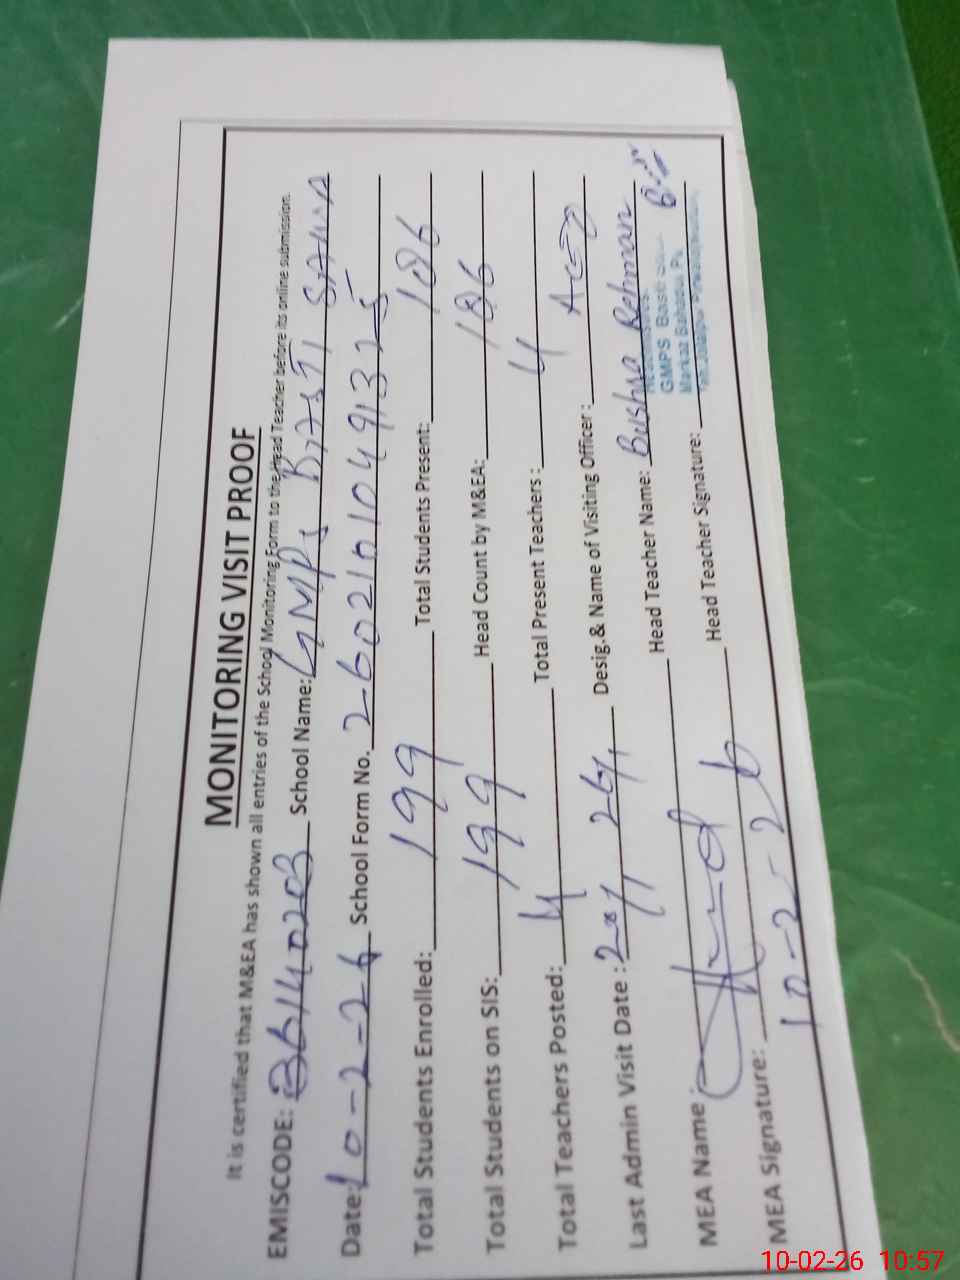 MONITORING VISIT PROOF
It is certified that M&EA has shown all entries of the School Monitoring Form to the Head Teacher before its online submission.
EMISCODE: 36140203 School Name: GMPS BASTI
Date: 10-2-26 School Form No. 26021010491325
Total Students Enrolled: 199 Total Students Present: 186
Total Students on SIS: 199 Head Count by M&EA: 186
Total Teachers Posted: 4 Total Present Teachers: 4
Last Admin Visit Date: Desig.& Name of Visiting Officer:
MEA Name: Head Teacher Name: Bushra Rehman
MEA Signature: Head Teacher Signature:
10-2-26
GMPS Basti
Markaz
10-02-26 10:57